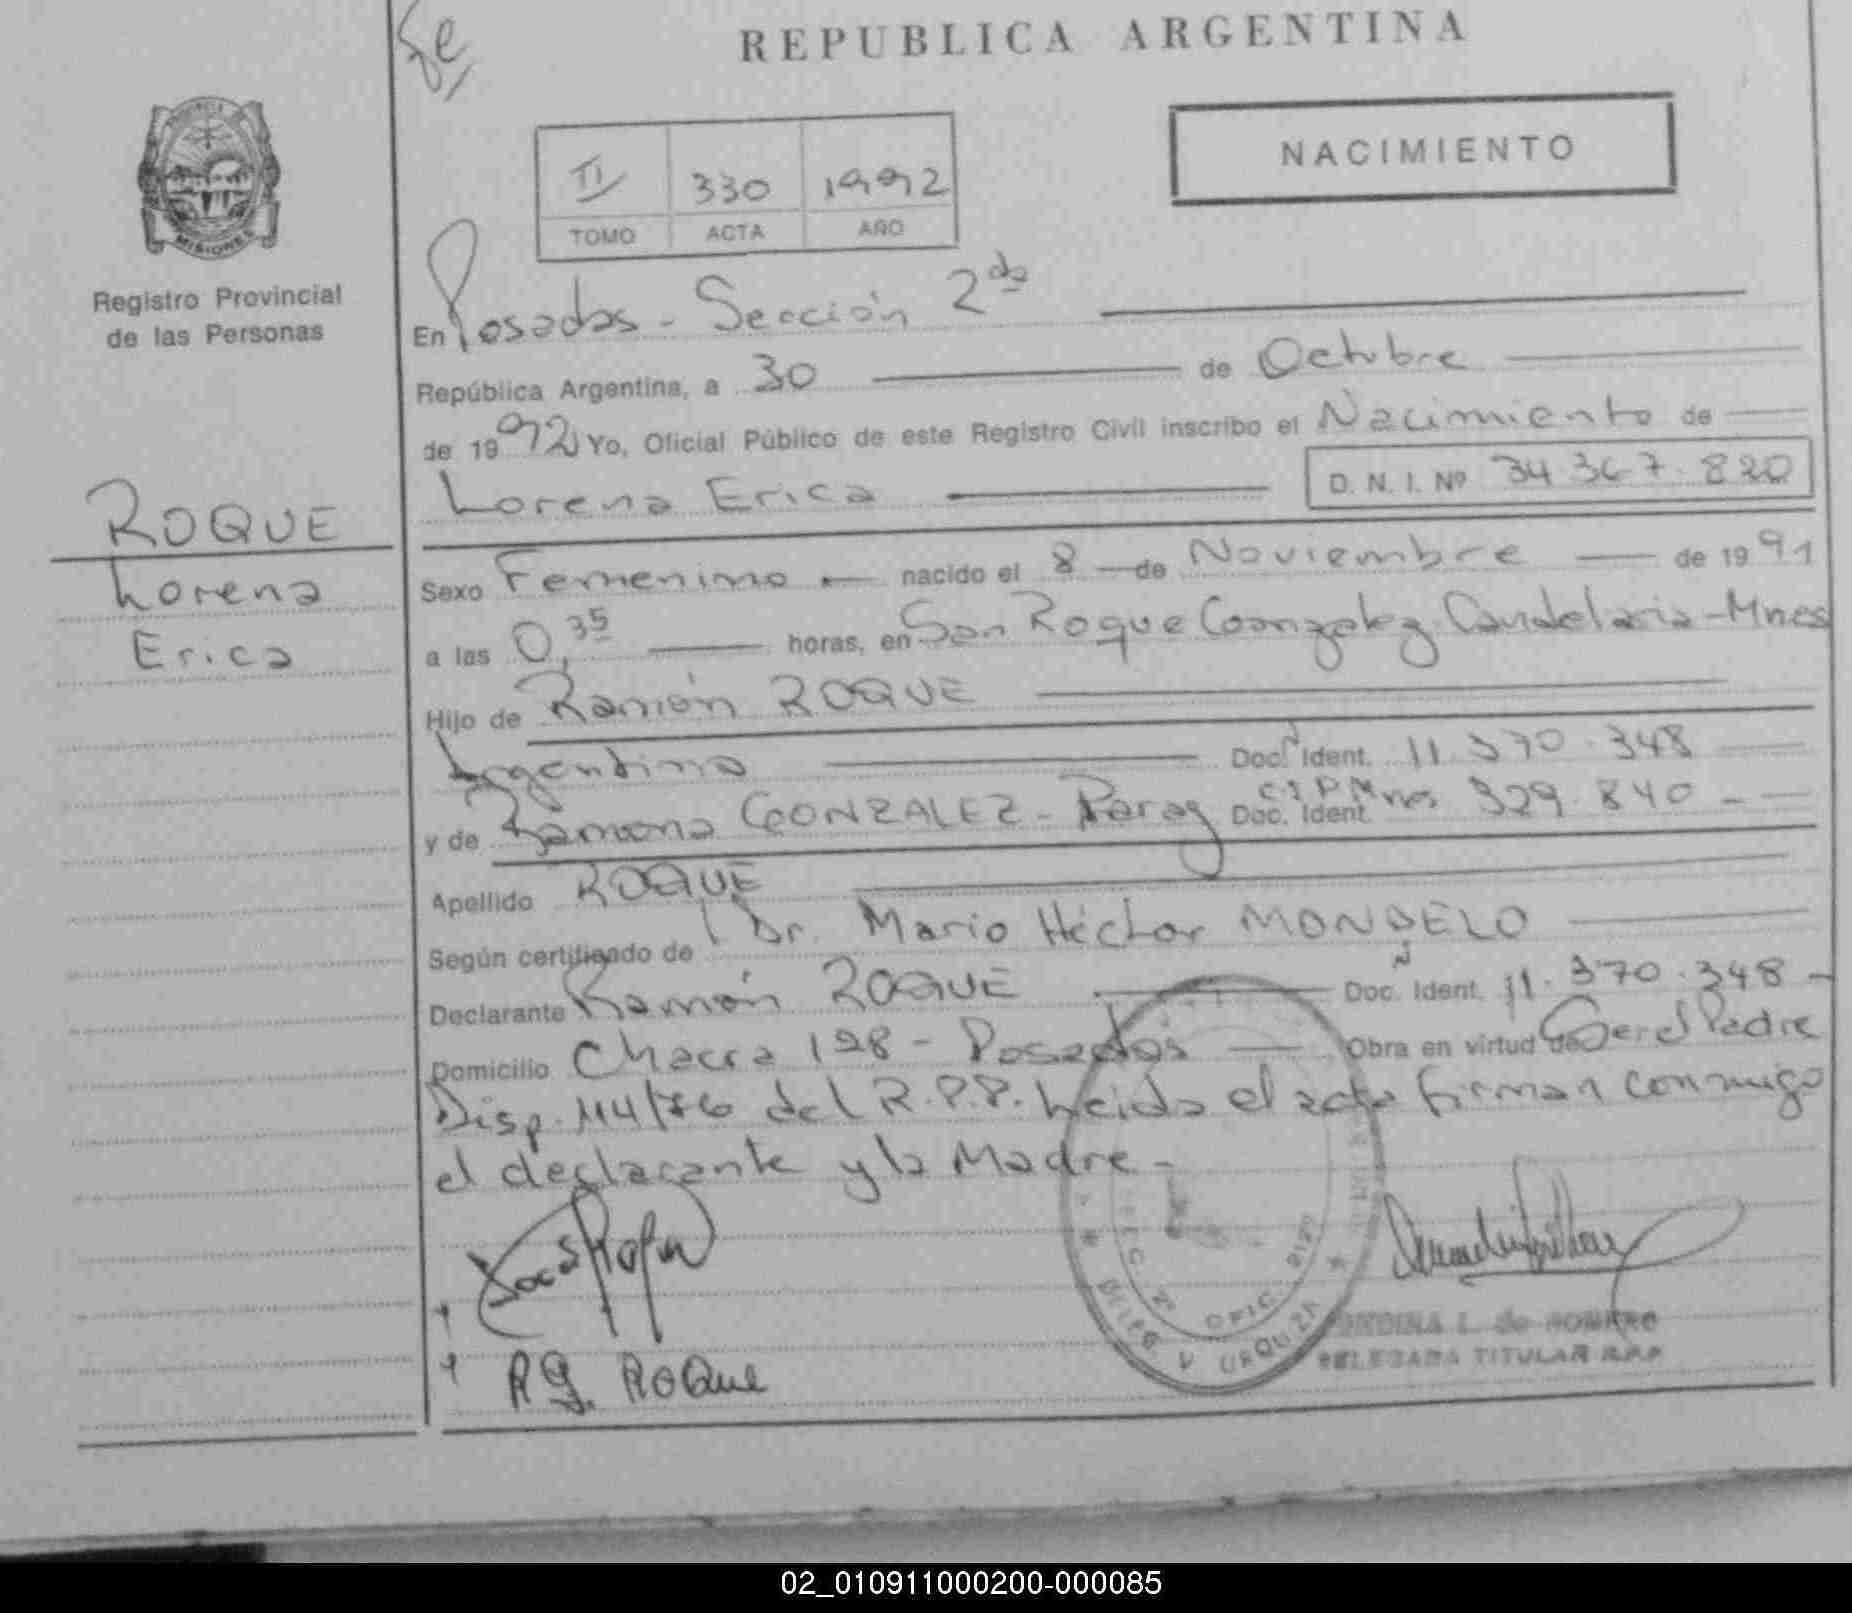 REPUBLICA ARGENTINA
NACIMIENTO
II 330 1992
TOMO ACTA AÑO
MISIONES
Registro Provincial
de las Personas
ROQUE
Lorena
Erica
En Posadas - Sección 2da
República Argentina, a 30 de Octubre
de 1992 Yo, Oficial Público de este Registro Civil inscribo el Nacimiento de
Lorena Erica D. N. I. Nº 34 367.820
Sexo Femenino nacido el 8 de Noviembre de 1991
a las 0,35 horas, en San Roque Gonzalez Candelaria-Mnes
Hijo de Ramón ROQUE
Argentino Doc. Ident. 11.370.348
y de Ramona GONZALEZ - Parag Doc. Ident. C.I.P.Mnes 329.840 -
Apellido ROQUE
Según certificado de Dr. Mario Héctor MONDELO
Declarante Ramón ROQUE Doc. Ident. 11.370.348 -
Domicilio Chacra 128 - Posadas Obra en virtud de Ser el Padre
Disp. 114/76 del R.P.P. Leida el acta firman conmigo
el declarante y la Madre -
OFIC. 2120
DELEG
V URQUIZA
R G. ROQue
L. de ROMERO
DELEGADA TITULAR R.P.P
02_010911000200-000085